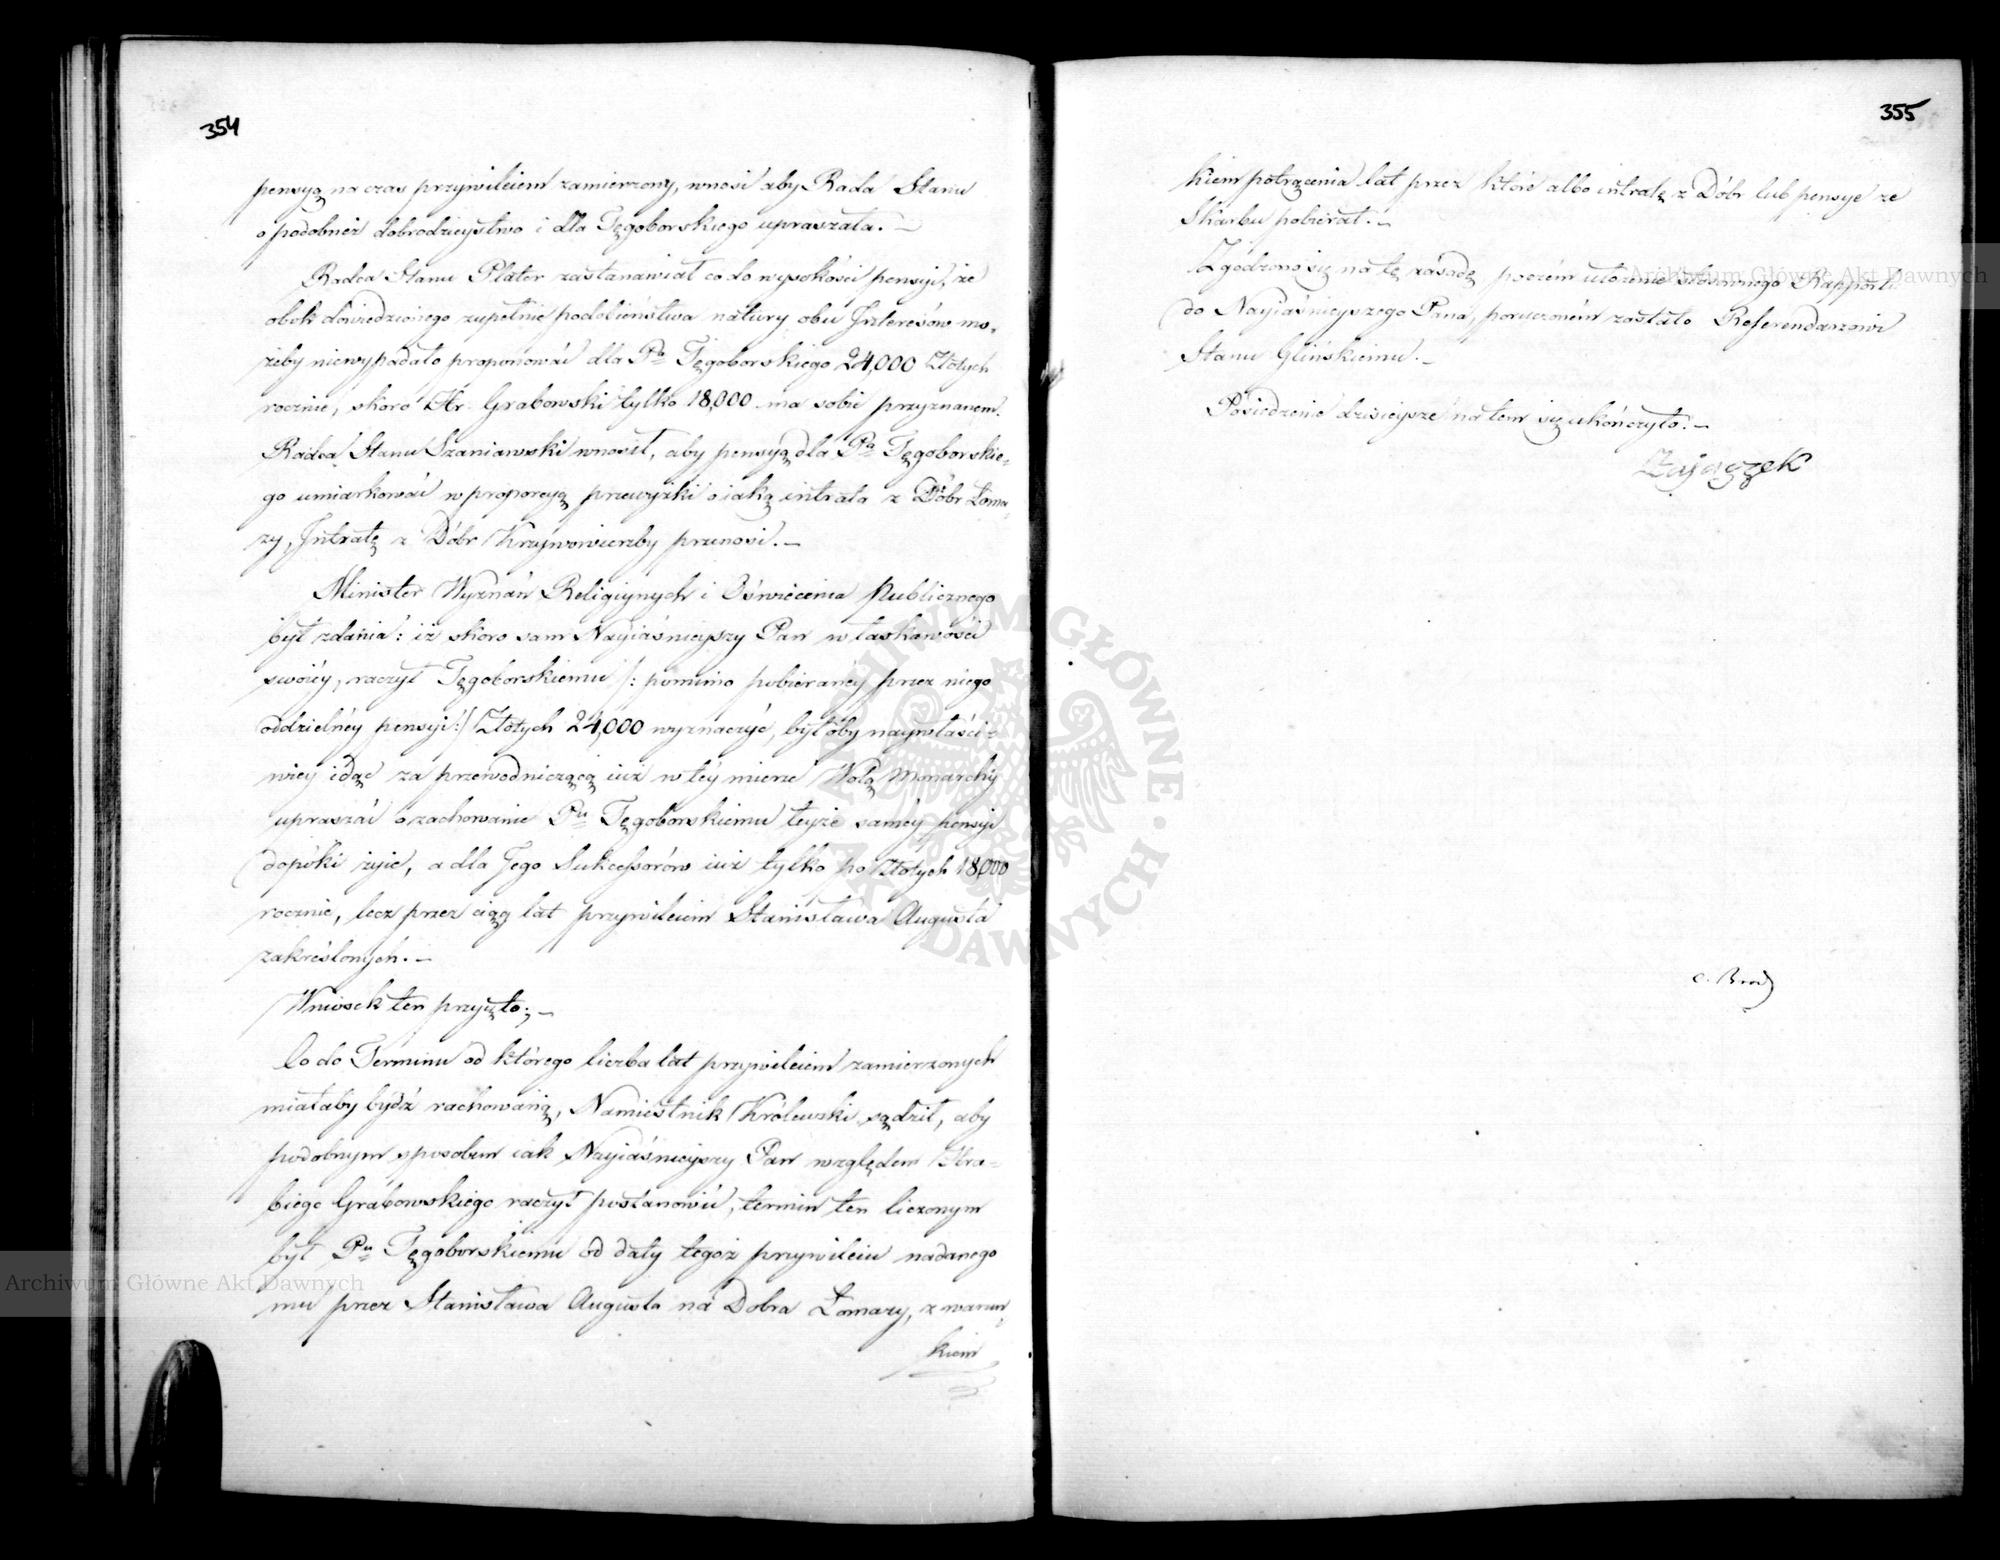 354
pensyą na czas przywileiem zamierzony, wnosi aby Rada Stanu
o podobneż dobrodzieystwo i dla Tęgoborskiego upraszała. —
Radca Stanu Plater zastanawiał co do wysokości pensyi, że
obok dowiedzionego zupełnie podobieństwa natury obu Interesów mo-
żeby niewypadało proponować dla Pa Tęgoborskiego 24,000 Złotych
rocznie, skoro Hr. Grabowski tylko 18,000 ma sobie przyznanem.
Radca Stanu Szaniawski wnosił, aby pensyą dla Pa Tęgoborskie-
go umiarkować w proporcyą przewyżki o iaką intrata z Dóbr Łoma-
zy, Intratę z Dóbr Krzywowierzby przenosi. —
Minister Wyznań Religiynych i Oświecenia Publicznego
był zdania: iż skoro sam Nayiaśnieyszy Pan w łaskawości
swoiey, raczył Tęgoborskiemu /: pomimo pobieraney przez niego
oddzielney pensyi :/ Złotych 24,000 wyznaczyć, byłoby naywłaści-
wiey idąc za przewodniczącą iuż w tey mierze Wolą Monarchy
upraszać o zachowanie Pu Tęgoborskiemu teyże samey pensyi
dopóki żyie, a dla Jego Sukcessorów iuż tylko po Złotych 18,000
rocznie, lecz przez ciąg lat przywileiem Stanisława Augusta
zakreślonych. —
Wniosek ten przyięto; —
Co do Terminu od którego liczba lat przywileiem zamierzonych
miałaby bydź rachowaną, Namiestnik Królewski sądził, aby
podobnym sposobem iak Nayiaśnieyszy Pan względem Hra-
biego Grabowskiego raczył postanowić, termin ten liczonym
był Pu Tęgoborskiemu od daty tegoż przywileiu nadanego
mu przez Stanisława Augusta na Dobra Łomazy, z warun-
kiem
355
kiem potrącenia lat przez które albo intratę z Dóbr lub pensye ze
Skarbu pobierał. —
Zgodzono się na tę zasadę, poczem ułożenie stosownego Rapportu
do Nayiaśnieyszego Pana, poruczonem zostało Referendarzowi
Stanu Glińskiemu. —
Posiedzenie dzisieysze na tem się ukończyło. —
Zajączek
Archiwum Główne Akt Dawnych
Archiwum Główne Akt Dawnych
ARCHIWUM GŁÓWNE AKT DAWNYCH